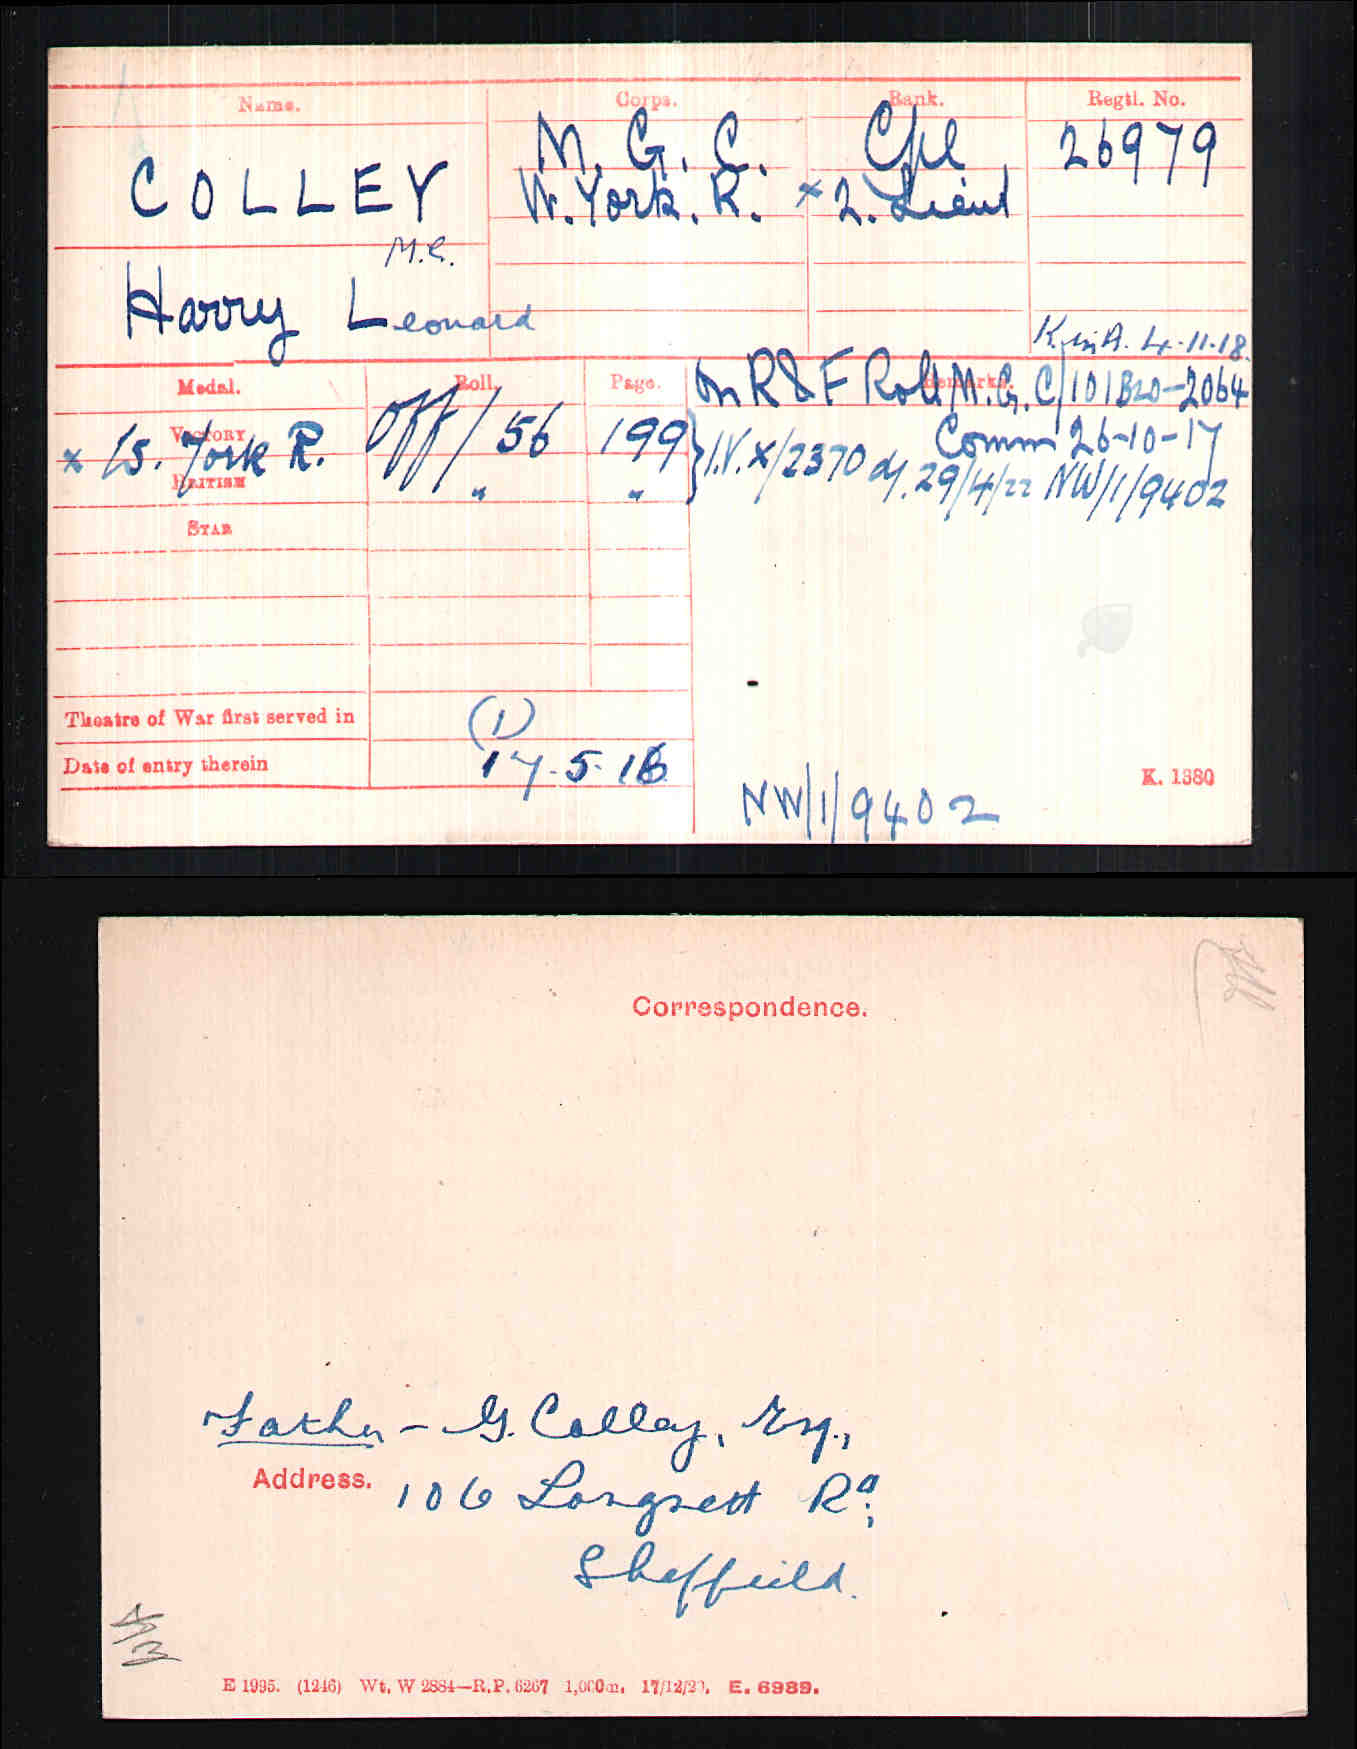 Name. Corps. Rank. Regtl. No.
M. G. C. Cpl 26979
COLLEY W. York. R. × 2. Lieut
M.C.
Harry Leonard
K. in A. 4-11-18.
Medal. Roll. Page. Remarks.
On R & F Roll M.G.C/101B20-2064
Victory Comm 26-10-17
× W. York R. Off/56 199 } I.V. X/2370 d/. 29/4/22 NW/1/9402
British " "
Star
Theatre of War first served in (1)
Date of entry therein 17-5-16
K. 1380
NW/1/9402
Correspondence.
Father - G. Colley, Esq.,
Address. 106 Langsett Rd.,
Sheffield.
E 1995. (1246) Wt. W 2884—R.P. 6267 1,000m. 17/12/20. E. 6989.